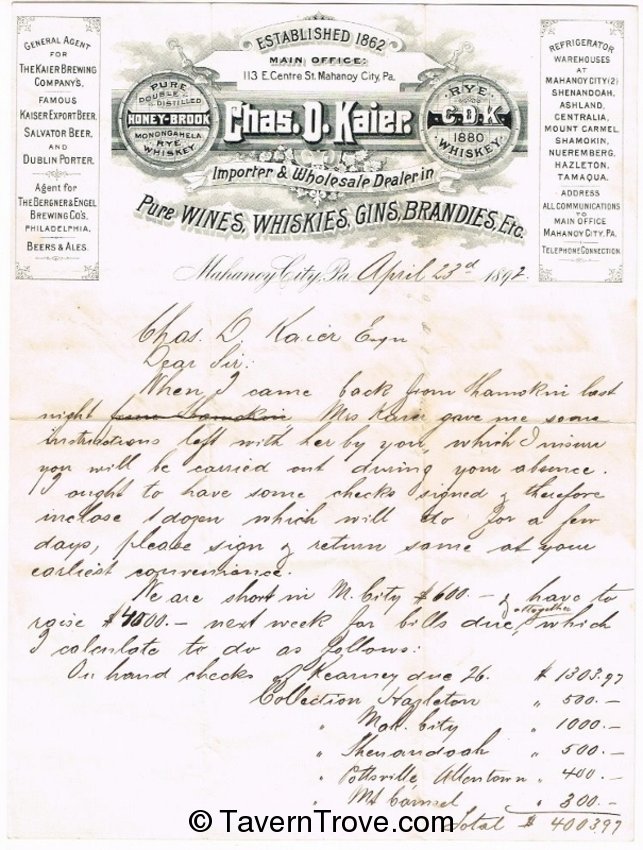 GENERAL AGENT
FOR
THE KAIER BREWING
COMPANY'S,
FAMOUS
KAISER EXPORT BEER,
SALVATOR BEER,
AND
DUBLIN PORTER.
AGENT FOR
THE BERGNER & ENGEL
BREWING CO'S,
PHILADELPHIA,
BEERS & ALES.
ESTABLISHED 1862
MAIN OFFICE:
113 E. Centre St. Mahanoy City, Pa.
PURE
DOUBLE
DISTILLED
HONEY-BROOK
MONONGAHELA
RYE
WHISKEY
Chas. D. Kaier.
RYE
C.D.K.
1880
WHISKEY
Importer & Wholesale Dealer in
Pure WINES, WHISKIES, GINS, BRANDIES, Etc.
REFRIGERATOR
WAREHOUSES
AT
MAHANOY CITY (2)
SHENANDOAH,
ASHLAND,
CENTRALIA,
MOUNT CARMEL,
SHAMOKIN,
NUEREMBERG,
HAZLETON,
TAMAQUA.
ADDRESS
ALL COMMUNICATIONS
TO
MAIN OFFICE
MAHANOY CITY, PA.
TELEPHONE CONNECTION.
Mahanoy City, Pa. April 23d 1892
Chas. D. Kaier Esqr
Dear Sir:
When I came back from Shamokin last
night from Shamokin Mrs Kaier gave me some
instructions left with her by you, which I insure
you will be carried out during your absence.
I ought to have some checks signed & therefore
inclose 1 dozen which will do for a few
days, please sign & return same at your
earliest convenience.
We are short in M. City $600.- & have to
raise $4000.- next week for bills due, altogether which
I calculate to do as follows:
On hand checks of Kearney due 26. $ 1303.97
Collection Hazleton " 500.-
" Mah. City " 1000.-
" Shenandoah " 500.-
" Pottsville Allentown " 400.-
" Mt Carmel " 300.-
Total $ 4003.97
© TavernTrove.com